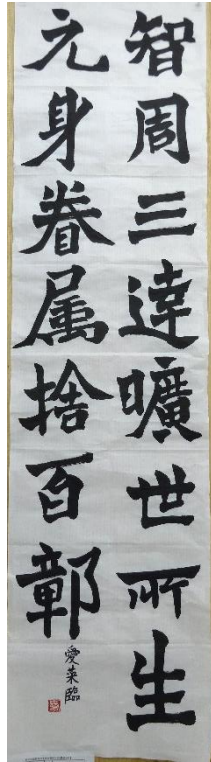 智周三達曠世所生
元身眷属捨百鄣
愛菜臨